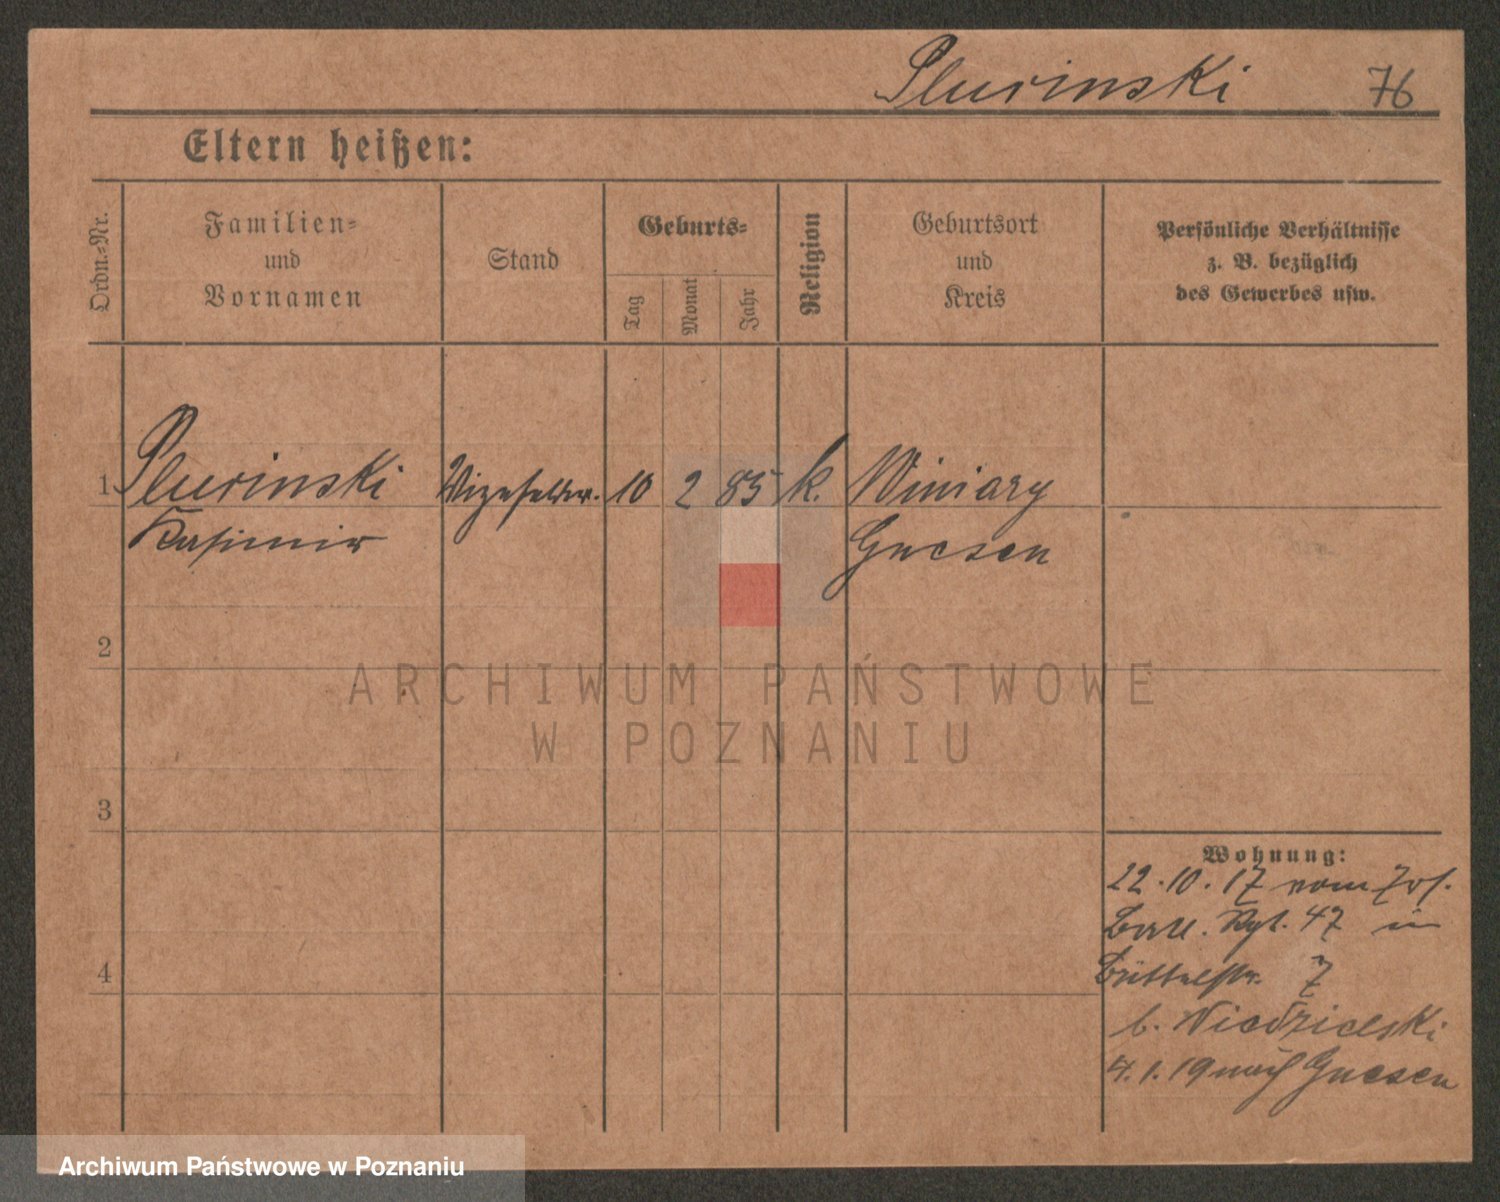 Slurinski 76
Eltern heißen:
Ordn.-Nr.
Familien- und Vornamen
Stand
Geburts-
Tag
Monat
Jahr
Religion
Geburtsort und Kreis
Persönliche Verhältnisse
z. B. bezüglich
des Gewerbes usw.
1 Slurinski Vizefeldw. 10 2 85 k. Winiary
Kasimir Gnesen
2
3
4
Wohnung:
22.10.17 vom Ers.
Batl. Rgt. 47 in
Büttelstr. 7
b. Niedzielski
4.1.19 nach Gnesen
ARCHIWUM PAŃSTWOWE
W POZNANIU
Archiwum Państwowe w Poznaniu